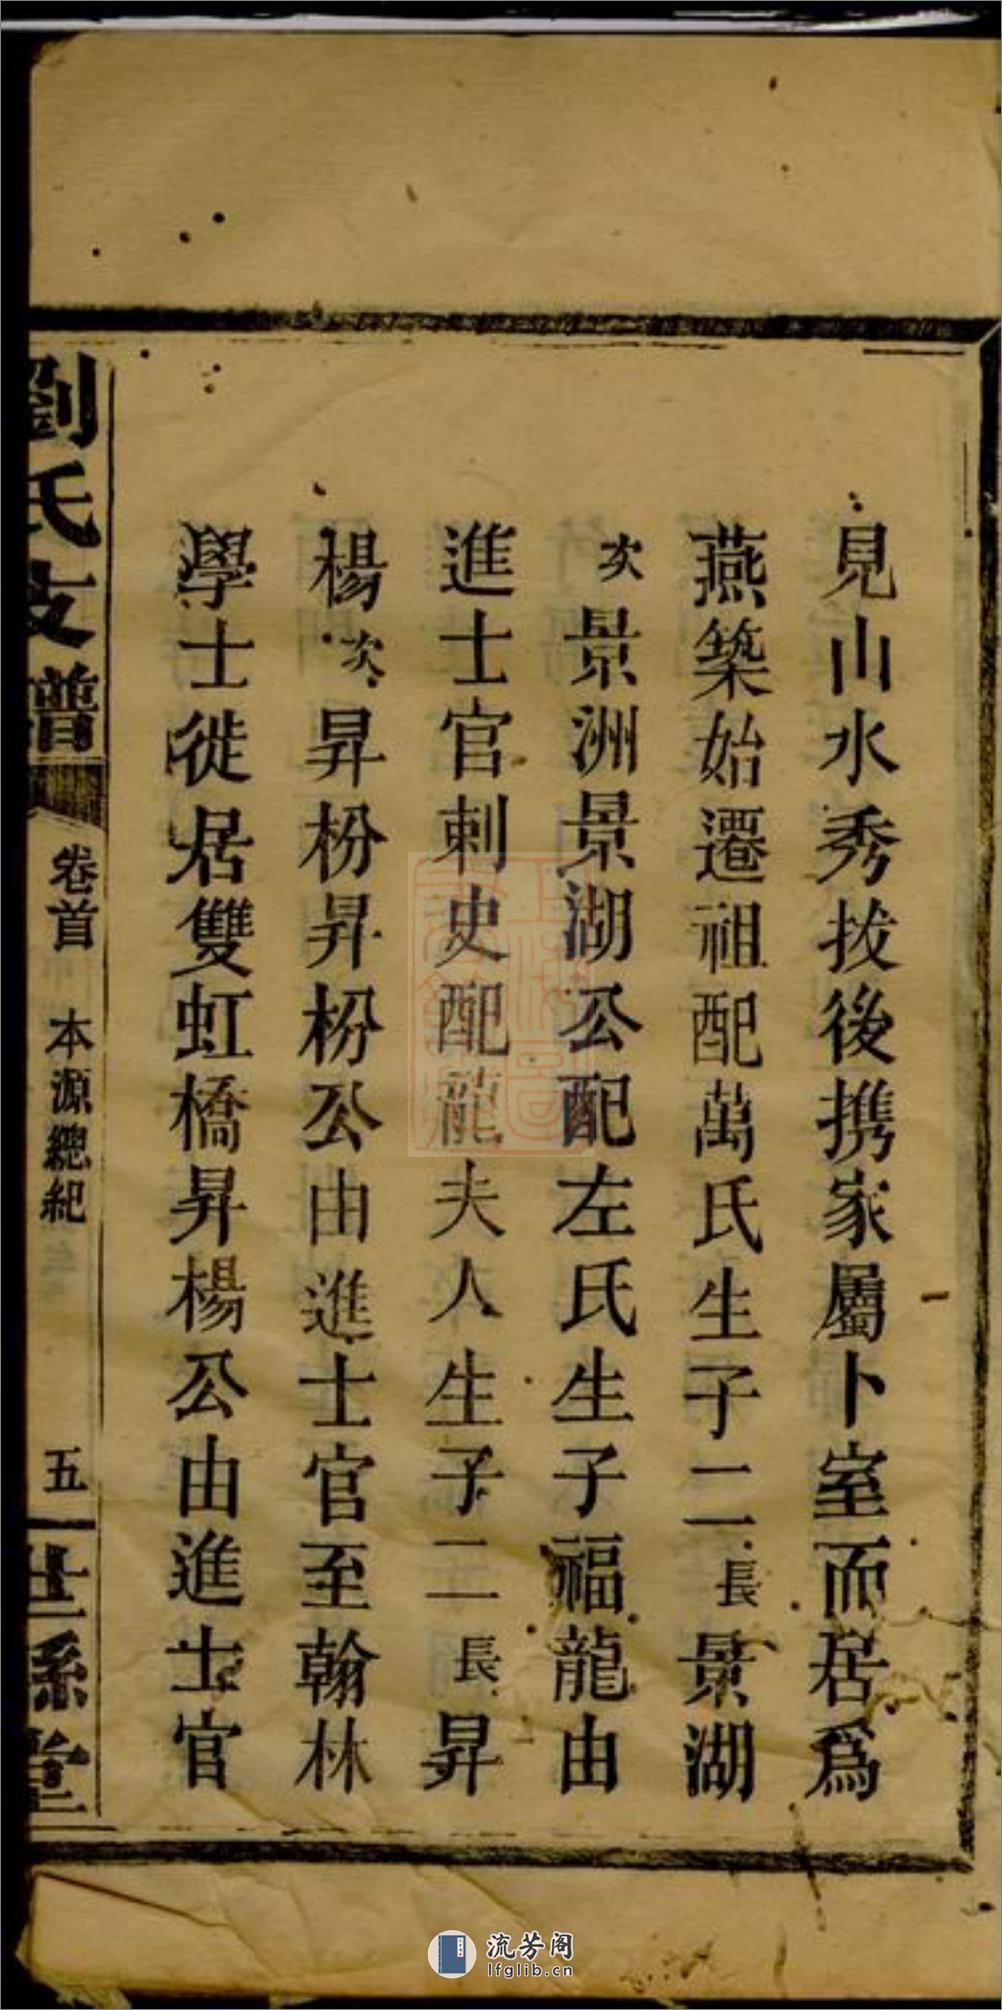 見山水秀拔後携家屬卜室而居爲
燕築始遷祖配萬氏生子二長景湖
次景洲景湖公配左氏生子福龍由
進士官刺史配龍夫人生子二長昇
楊次昇枌昇枌公由進士官至翰林
學士徙居雙虹橋昇楊公由進士官
劉氏支譜
卷首
本源總紀
五
流芳阁
lfglib.cn